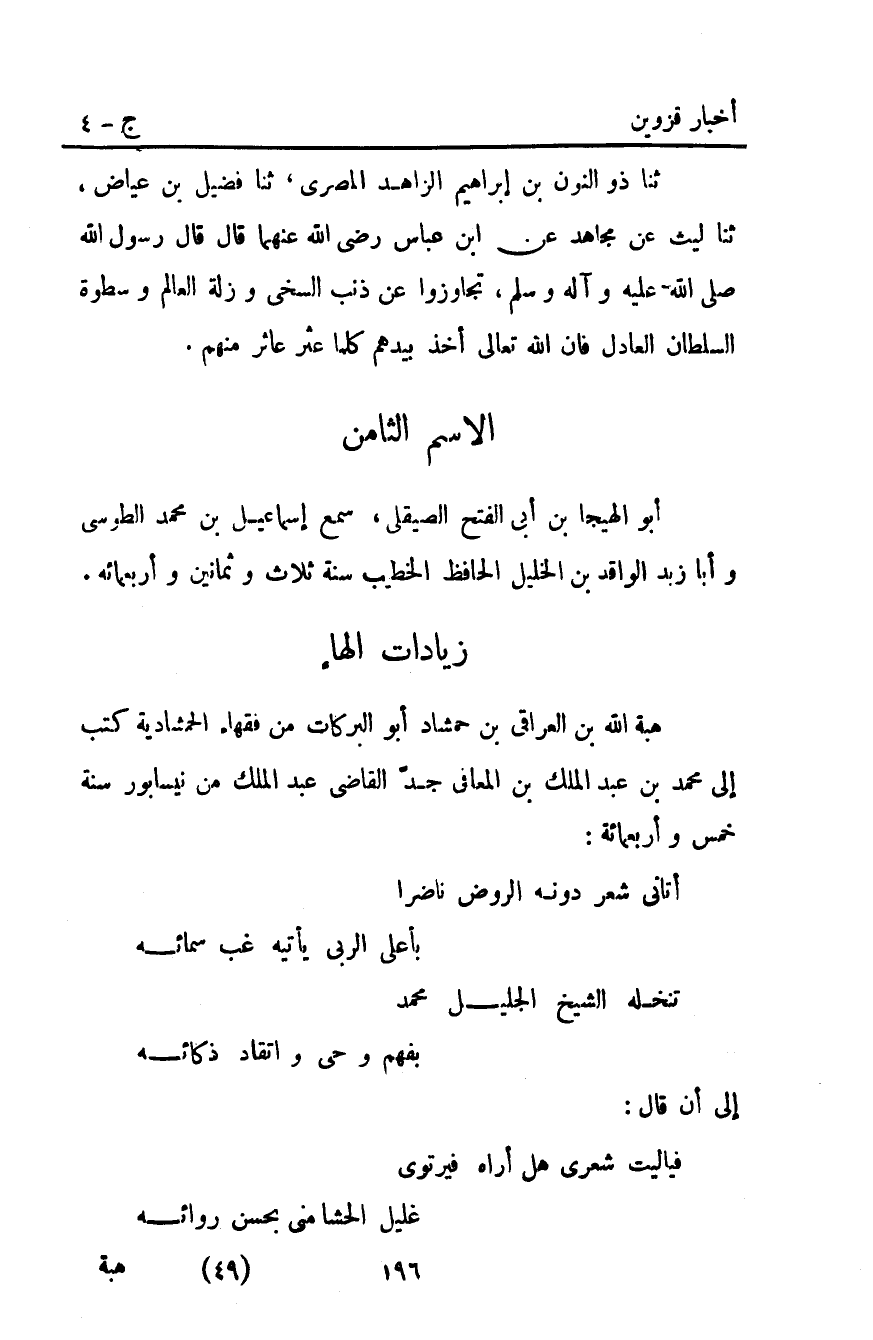 أخبار قزوين ج - ٤
ثنا ذو النون بن إبراهيم الزاهد المصرى، ثنا فضيل بن عياض،
ثنا ليث عن مجاهد عن ابن عباس رضى الله عنهما قال قال رسول الله
صلى الله عليه و آله و سلم، تجاوزوا عن ذنب السخى و زلة العالم و سطوة
السلطان العادل فان الله تعالى أخذ بيدهم كلما عثر عاثر منهم .
الاسم الثامن
أبو الهيجا بن أبى الفتح الصيقلى، سمع إسماعيل بن محمد الطوسى
و أبا زبد الواقد بن الخليل الحافظ الخطيب سنة ثلاث و ثمانين و أربعمائه .
زيادات الهاء
هبة الله بن العراقى بن حمشاد أبو البركات من فقهاء الحمشادية كتب
إلى محمد بن عبد الملك بن المعافى جدّ القاضى عبد الملك من نيسابور سنة
خمس و أربعمائة :
أتانى شعر دونه الروض ناضرا
بأعلى الربى يأتيه غب سمائه
تنخله الشيخ الجليل محمد
بفهم و حى و اتقاد ذكائه
إلى أن قال :
فياليت شعرى هل أراه فيرتوى
غليل الحشا منى بحسن روائه
١٩٦ (٤٩) هبة